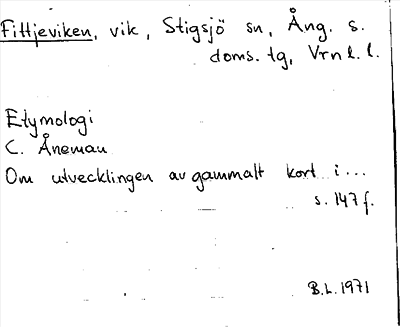 Fittjeviken, vik, Stigsjö sn, Ång. s.
doms. tg, Vrnl. l.
Etymologi
C. Åneman
Om utvecklingen av gammalt kort i...
s. 147 f.
B.L. 1971